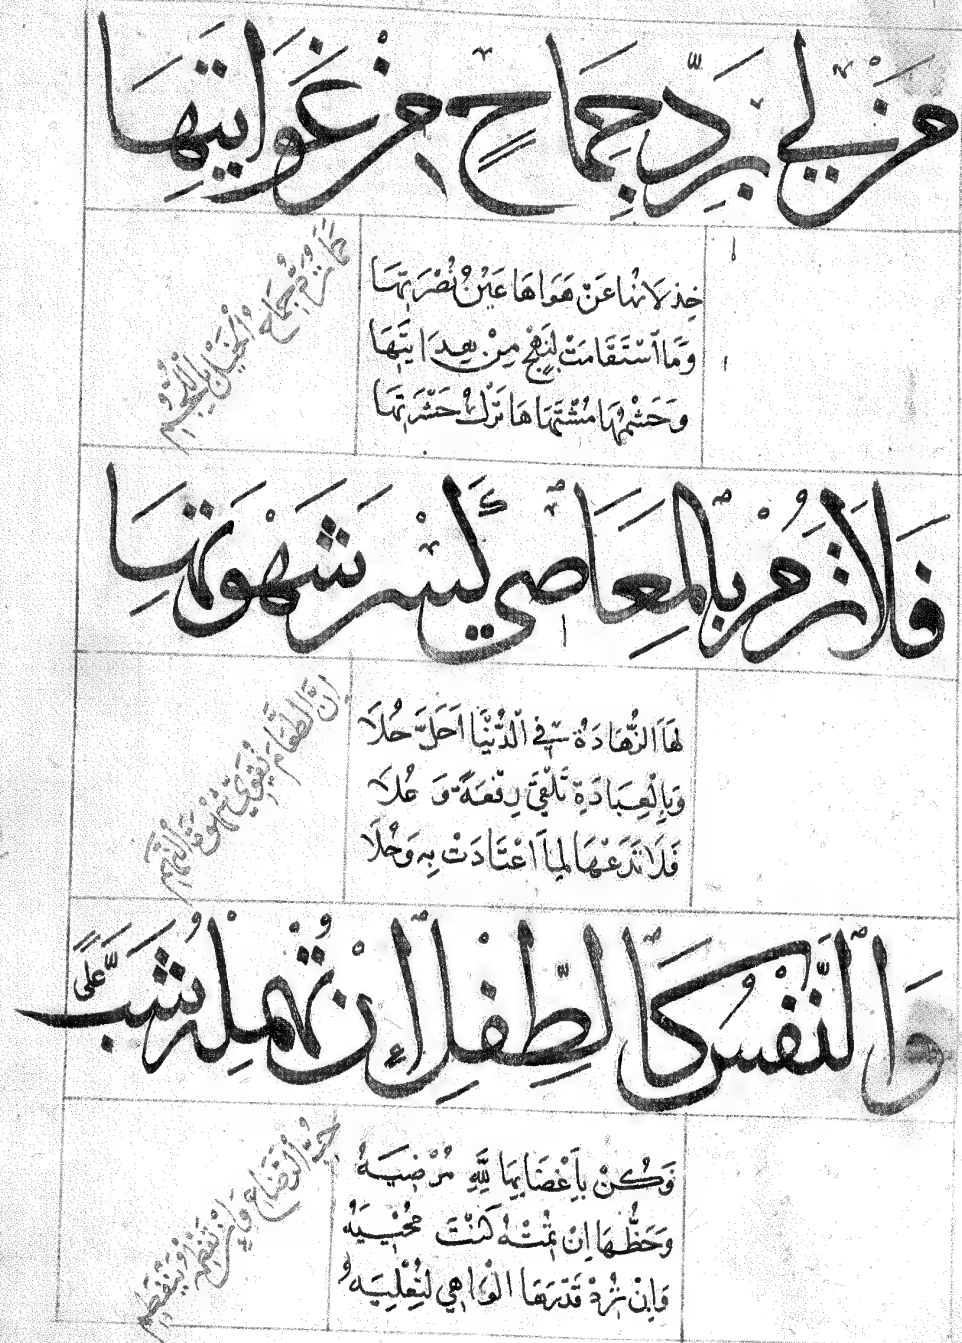 مَن لِي بِرَدِّ جِمَاحٍ مِن غَوَايَتِهَا
خِذلَانُهَا عَنْ هَوَاهَا عَيْنُ نُصْرَتِهَا
وَمَا اسْتَقَامَتْ لِنَهْجٍ مِنْ
وَحَسْمُهَا مُشْتَهَاهَا تَرْكُ حَسْرَتِهَا
كَمَا يُرَدُّ جِمَاحُ الْخَيْلِ بِاللُّجُمِ
فَلَا تَرُمْ بِالمَعَاصِي كَسْرَ شَهْوَتِهَا
لَهَا الزَّهَادَةُ فِي الدُّنْيَا أَجَلُّ حُلَا
وَبِالْعِبَادَةِ تَلْقَى رِفْعَةً وَعُلَا
فَلَا تَدَعْهَا لِمَا اعْتَادَتْ بِهِ وَخُلَا
إِنَّ الطَّعَامَ يُقَوِّي شَهْوَةَ النَّهِمِ
وَالنَّفْسُ كَالطِّفْلِ إِنْ تُهْمِلْهُ شَبَّ عَلَى
وَكُنْ بِإِغْضَابِهَا لِلّٰهِ مُرْضِيَهُ
وَحَظُّهَا إِنْ تُمِتْهُ كُنْتَ مُحْيِيَهُ
وَإِنْ تُرِدْ قَدْرَهَا الْوَاهِي لِتُعْلِيَهُ
حُبِّ الرَّضَاعِ وَإِنْ تَفْطِمْهُ يَنْفَطِمِ